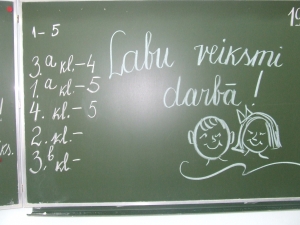 1-5
3.a kl.-4
1.a kl.-5
4. kl.- 5
2. kl.-
3.b kl-
Labu veiksmi
darbā!
19